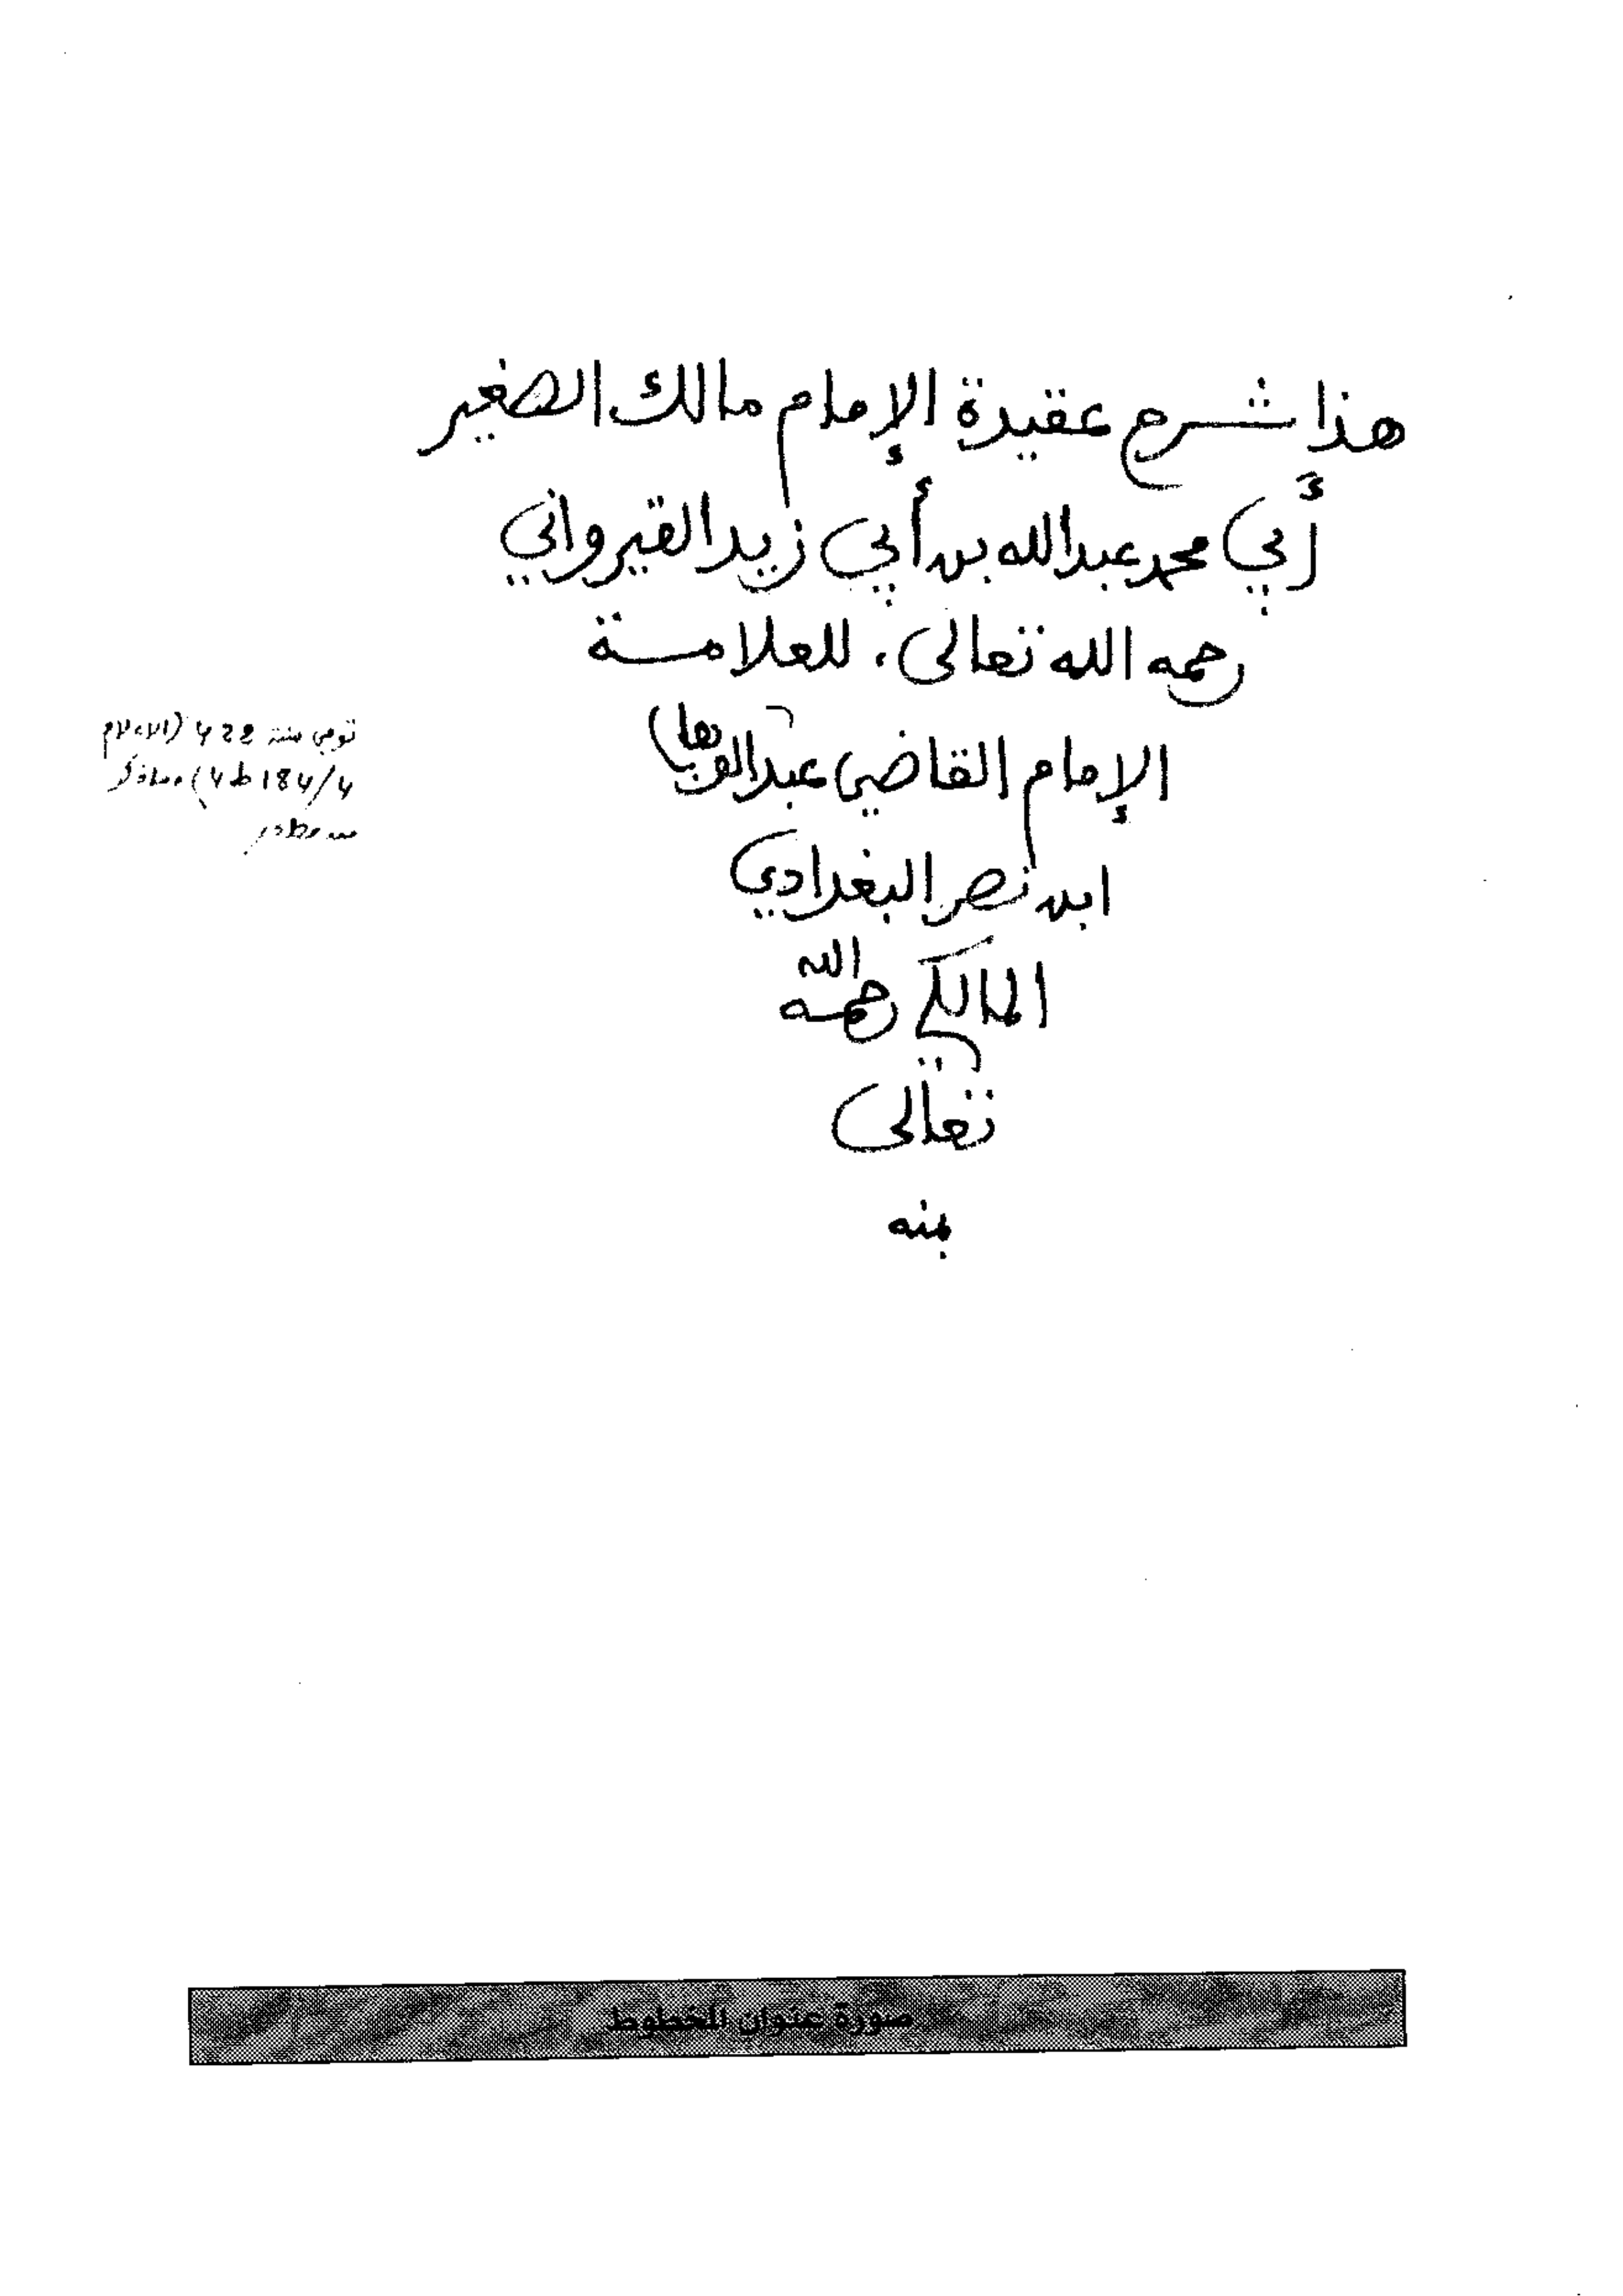 هذا شرح عقيدة الإمام مالك الصغير
أبي محمد عبد الله بن أبي زيد القيرواني
رحمه الله تعالى، للعلامة
الإمام القاضي عبد الوهاب
ابن نصر البغدادي
المالكي رحمه الله
تعالى
بمنه
توفي سنة 422 (الأعلام
4/184 ط 4) وما ذكر
من مصادر
صورة عنوان المخطوط